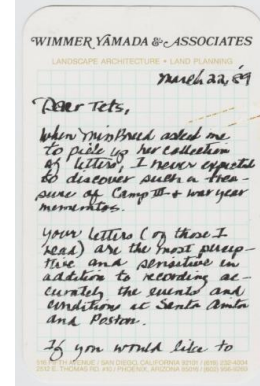 WIMMER YAMADA & ASSOCIATES
LANDSCAPE ARCHITECTURE • LAND PLANNING
March 22, '89
Dear Tets,
When Miss Breed asked me
to pick up her collection
of letters, I never expected
to discover such a trea-
sure of Camp III + war year
mementos.
Your letters (or those I
read) are the most percep-
tive and sensitive in
addition to recording ac-
curately the events and
conditions at Santa Anita
and Poston.
If you would like to
AVENUE | SAN DIEGO, CALIFORNIA 92101 | (619) 232-4004
2632 E. THOMAS RD. #10 | PHOENIX, ARIZONA 85016 | (602)